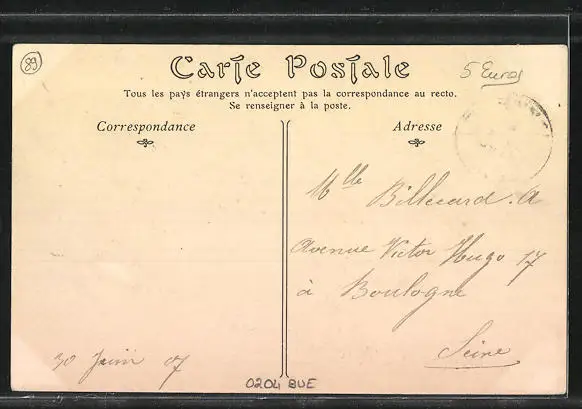 89
Carte Postale
5 Euros
Tous les pays étrangers n'acceptent pas la correspondance au recto.
Se renseigner à la poste.
Correspondance
Adresse
Mlle Billecard. A
Avenue Victor Hugo 17
à Boulogne
Seine
30 Juin 07
0204 BUE